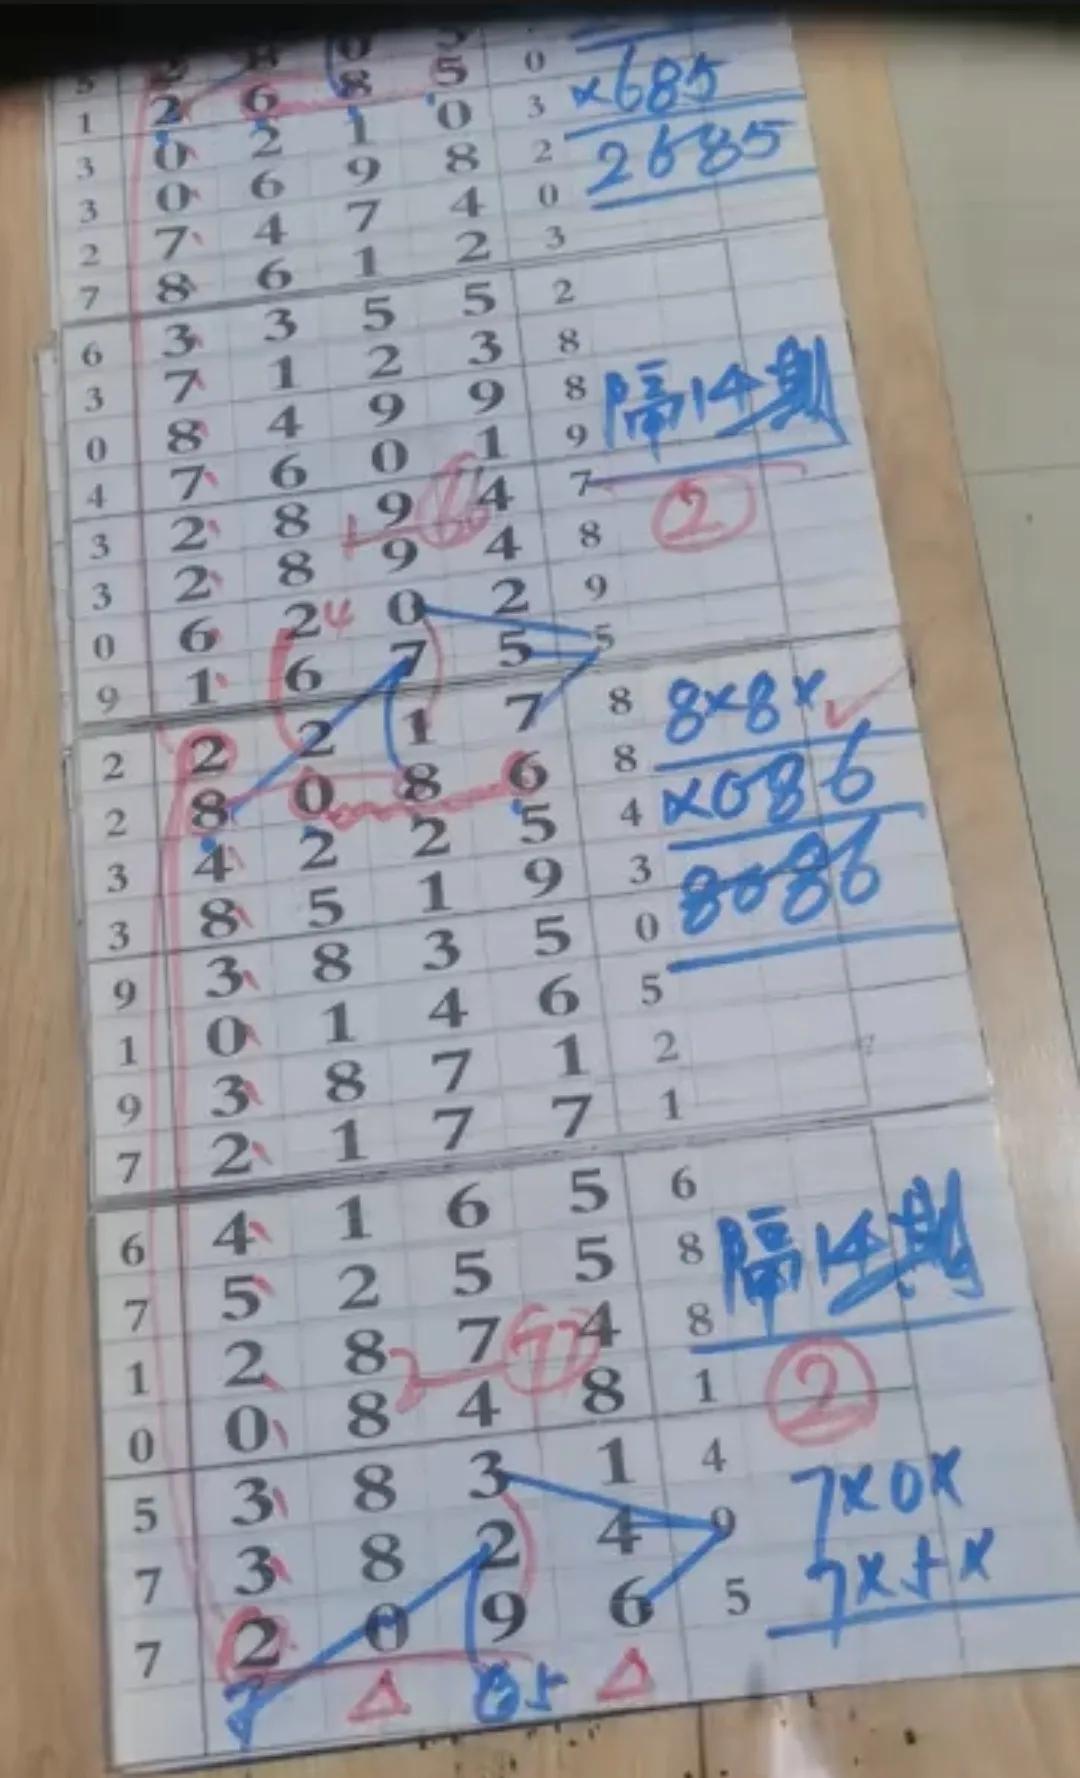 2 6 8 5 0 ×685
1 0 2 1 0 3 2685
3 0 6 9 8 2
3 7 4 7 4 0
2 8 6 1 2 3
7 3 3 5 5 2
6 7 1 2 3 8
3 8 4 9 9 8 隔14期
0 7 6 0 1 9
4 2 8 9 4 7 ②
3 2 8 9 4 8
3 6 2 4 0 2 9
0 1 6 7 5 5
9 2 2 1 7 8 8×8×
2 8 0 8 6 8 ×086
2 4 2 2 5 4 8086
3 8 5 1 9 3
3 3 8 3 5 0
9 0 1 4 6 5
1 3 8 7 1 2
9 2 1 7 7 1
7 4 1 6 5 6
6 5 2 5 5 8 隔14期
7 2 8 7 4 8
1 0 8 4 8 1 ②
0 3 8 3 1 4
5 3 8 2 4 9 7×0×
7 2 0 9 6 5 7×5×
7